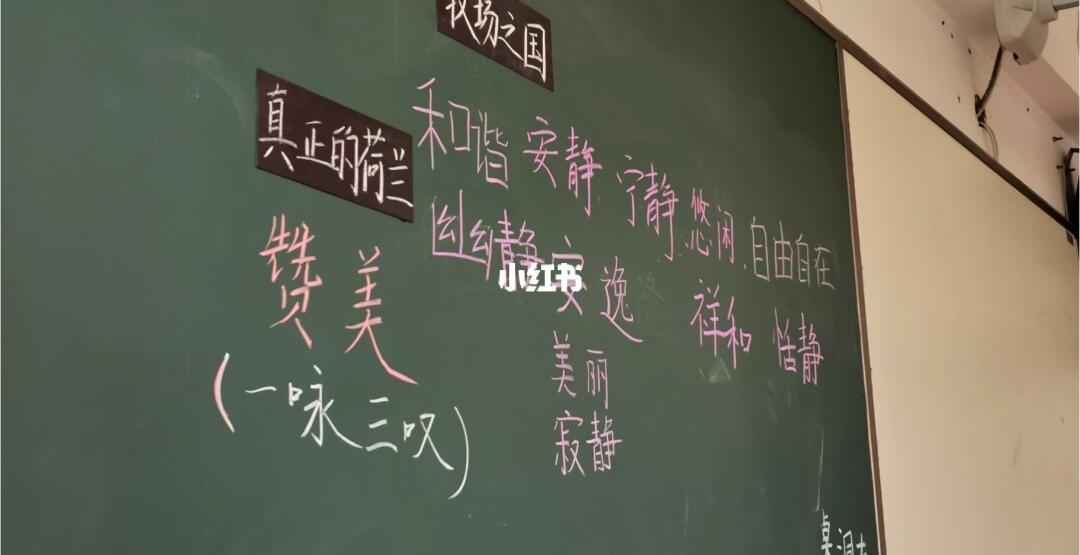 牧场之国
真正的荷兰
和谐 安静 宁静 悠闲 自由自在
幽静 安逸 祥和 恬静
赞美
美丽
(一咏三叹)
寂静
小红书